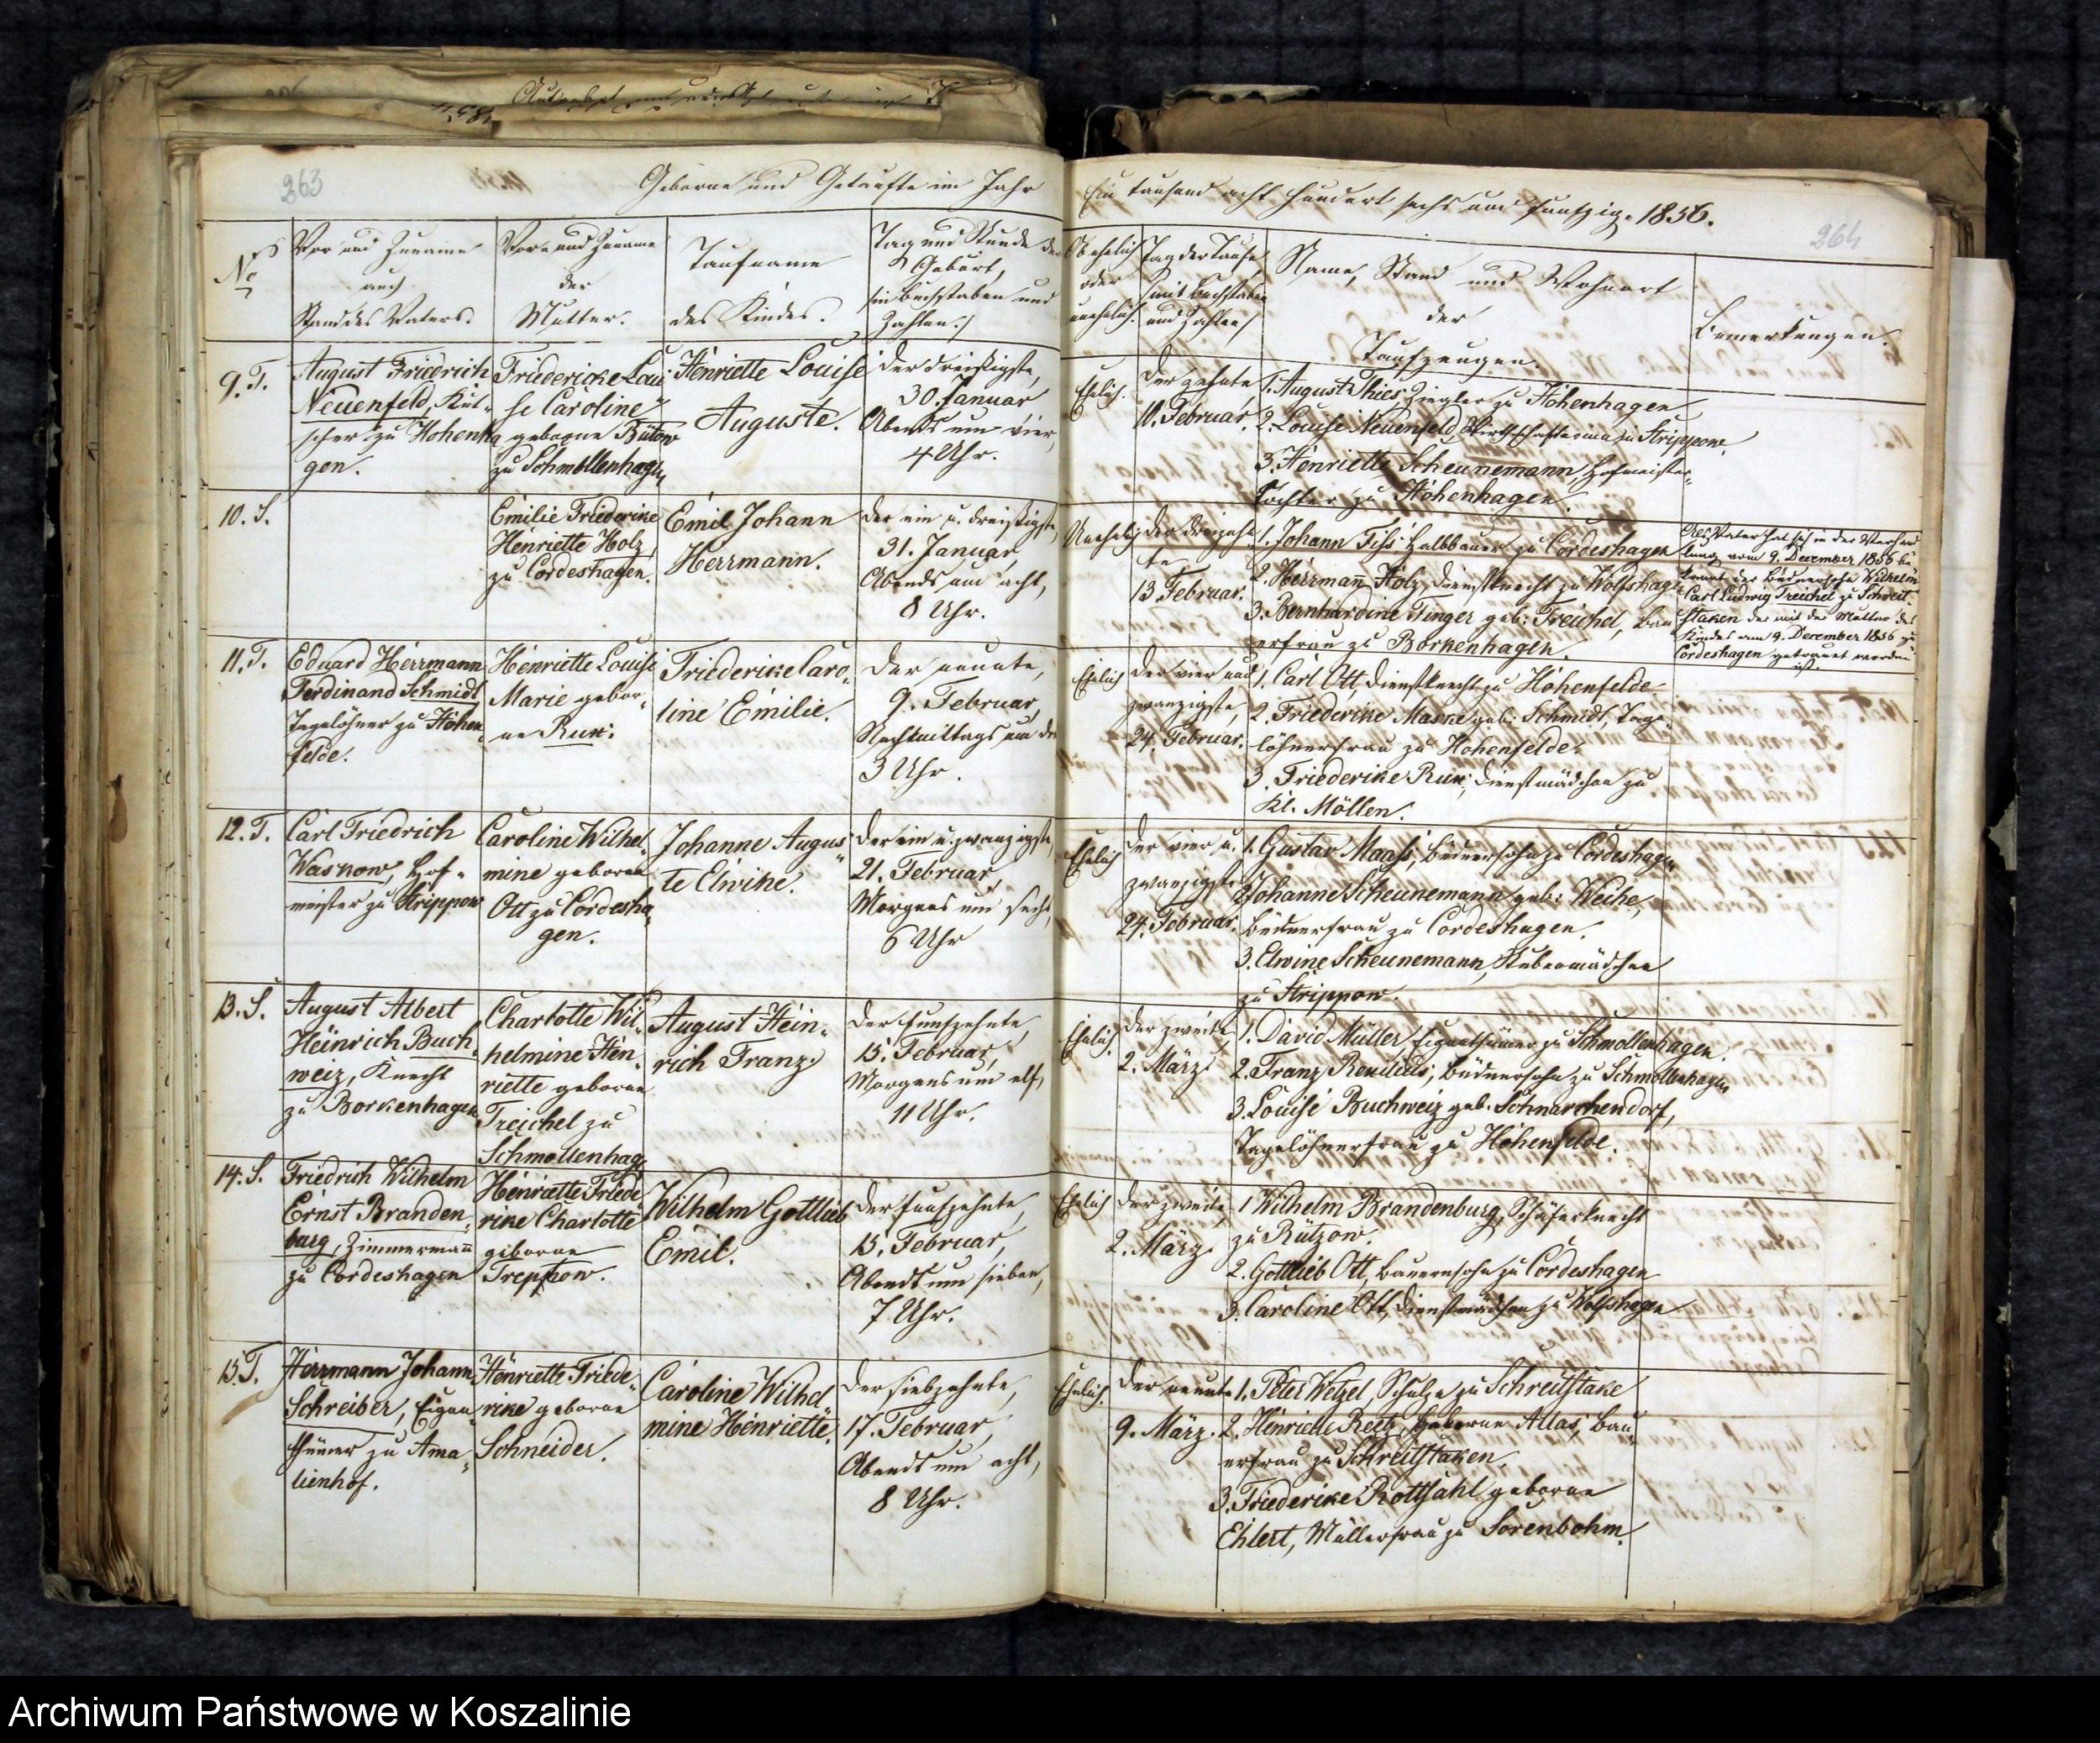 263
Geborne und Getaufte im Jahr
No
Vor und Zuname
auch
Stand des Vaters.
Vor- und Zuname
der
Mutter.
Taufname
des Kindes.
Tag und Stunde der
Geburt,
(in Buchstaben und
Zahlen.)
9. T.
August Friedrich
Neuenfeld, Kut-
scher zu Hohenha
gen.
Friedericke Loui-
se Caroline
geborne Bütow
zu Schmollenhagen
Henriette Louise
Auguste.
der dreißigste,
30. Januar
Abends um vier,
4 Uhr.
10. S.
Emilie Friederike
Henriette Holz
zu Cordeshagen.
Emil Johann
Herrmann.
der ein u. dreißigste,
31. Januar,
Abends um acht,
8 Uhr.
11. T.
Eduard Herrmann
Ferdinand Schmidt
Tagelöhner zu Hohen-
felde.
Henriette Louise
Marie gebor-
ne Rux.
Friederike Caro-
line Emilie.
der neunte,
9. Februar,
Nachmittags um drei
3 Uhr.
12. T.
Carl Friedrich
Wasnow, Hof-
meister zu Strippow
Caroline Wilhel-
mine geborne
Ott zu Cordesha-
gen.
Johanne Augus-
te Elwine.
der ein u. zwanzigste,
21. Februar,
Morgens um sechs,
6 Uhr
13. S.
August Albert
Heinrich Buch-
weiz, Knecht
zu Borkenhagen
Charlotte Wil-
helmine Hen-
riette geborne
Treichel zu
Schmollenhag.
August Hein-
rich Franz
der funfzehnte,
15. Februar,
Morgens um elf,
11 Uhr.
14. S.
Friedrich Wilhelm
Ernst Branden-
burg, Zimmermann
zu Cordeshagen
Henriette Friede-
rike Charlotte
geborne
Treptow.
Wilhelm Gottlieb
Emil.
der funfzehnte,
15. Februar,
Abends um sieben,
7 Uhr.
15. T.
Herrmann Johann
Schreiber, Eigen-
thümer zu Ama-
lienhof.
Henriette Friede-
rike geborne
Schneider.
Caroline Wilhel
mine Henriette.
der siebzehnte,
17. Februar,
Abends um acht,
8 Uhr.
Ein tausend acht hundert sechs und funfzig. 1856.
264
Ob ehelich
oder
unehelich.
Tag der Taufe,
(mit Buchstaben
und Zahlen)
Name, Stand und Wohnort
der
Taufzeugen.
Bemerkungen.
Ehelich.
der zehnte,
10. Februar.
1. August Thies Ziegler zu Hohenhagen
2. Louise Neuenfeld, Wirthschafterin zu Strippow.
3. Henriette Scheunemann, Hofmeister-
tochter zu Hohenhagen.
Unehelig
der dreizehn
te
13. Februar.
1. Johann Tiss Halbbauer zu Cordeshagen
2. Herrman Holz, Dienstknecht zu Wolfshagen
3. Bernhardine Finger geb. Treichel, Bau-
erfrau zu Borkenhagen.
Als Vater hat sich in der Verhand-
lung vom 9. December 1856 be-
kannt der Büdnersohn Wilhelm
Carl Ludwig Treichel zu Schreit-
staken der mit der Mutter des
Kindes am 9. December 1856 zu
Cordeshagen getrauet worden
ist.
Ehelich
der vier und
zwanzigste,
24. Februar.
1. Carl Ott Dienstknecht zu Hohenfelde
2. Friederike Maske geb. Schmidt, Tage-
löhnerfrau zu Hohenfelde
3. Friederike Rux, Dienstmädchen zu
Kl. Möllen.
Ehelich
der vier u.
zwanzigste
24. Februar.
1. Gustav Maass, Büdnersohn zu Cordeshagen
2. Johanne Scheunemann geb. Weihe,
Büdnerfrau zu Cordeshagen.
3. Elwine Scheunemann, Stubenmädchen
zu Strippow.
Ehelich.
der zweite,
2. März.
1. David Müller Eigenthümer zu Schmollenhagen.
2. Franz Romilius, Büdnersohn zu Schmollenhagen
3. Louise Buchweiz geb. Schnarchendorf,
Tagelöhnerfrau zu Hohenfelde.
Ehelich
der zweite,
2. März.
1 Wilhelm Brandenburg, Schäferknecht
zu Rützow.
2. Gottlieb Ott, Bauernsohn zu Cordeshagen
3. Caroline Ott, Dienstmädchen zu Wolfshagen
Ehelich.
der neunte
9. März.
1. Peter Wetzel, Schulze zu Schreitstake
2. Henriette Reetz, geborne Allas, Bau-
erfrau zu Schreitstaken.
3. Friederike Rottsahl geborne
Ehlert, Müllerfrau zu Sorenbohm.
Archiwum Państwowe w Koszalinie